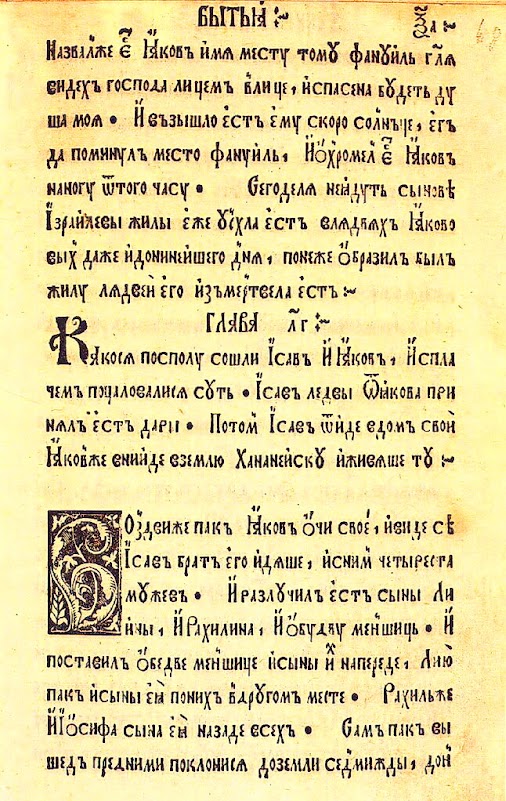 БЫТЬІА҆ :~ ѯ҃а ~
Назвалже є҆҃ І҆аковъ и҆мя месту тому фануи҆ль гл҃я
видехъ господа лицем̾ влице, и҆спасена будеть ду
ша моя • И҆ възышло є҆стъ є҆му скоро сол̾н̾це, є҆гъ
да поминул место фануи҆ль, И҆о҆хромел є҆҃ І҆аковъ
наногу ѿтого часу • Сегоделя неи҆дуть сынове
І҆зраил̾евы жилы є҆же усхла є҆стъ влядвяхъ І҆аково
выхъ даже и҆дони́нейшего дн҃я, понеже о҆бразилъ былъ
жилу лядвеи҆ є҆го и҆зъмертвела є҆стъ :~
ГЛАВА л҃г :~
Какося посполу сошли І҆савъ И҆ І҆аковъ, И҆спла
чемъ поцаловалися суть • І҆савъ ледвы Ѿя҆кова при
нялъ є҆стъ дары • Потом̾ І҆савъ ѿи҆де вдомъ свои҆
І҆аковже вни҆иде вземлю Хананеи҆ску и҆живяше ту :~
Воздвиже пакъ І҆аковъ о҆чи свое҆, и҆виде се
І҆савъ братъ є҆го и҆дяше, и҆сним̾ четыреста
мужевъ • И҆разлучилъ є҆стъ сыны Ли
и҆ны, И҆ Рахилина, И҆ о҆будву мен̾шиць • И҆
поставилъ о҆бедве мен̾шице и҆сыны и҆х̾ напереде, Лию҆
пакъ и҆сыны є҆я҆ поних̾ вдругомъ месте • Рахильже
И҆І҆осифа сына є҆я҆ назаде всехъ • Самъ пакъ вы
шедъ предними поклонися доземли седмижды, дои҆